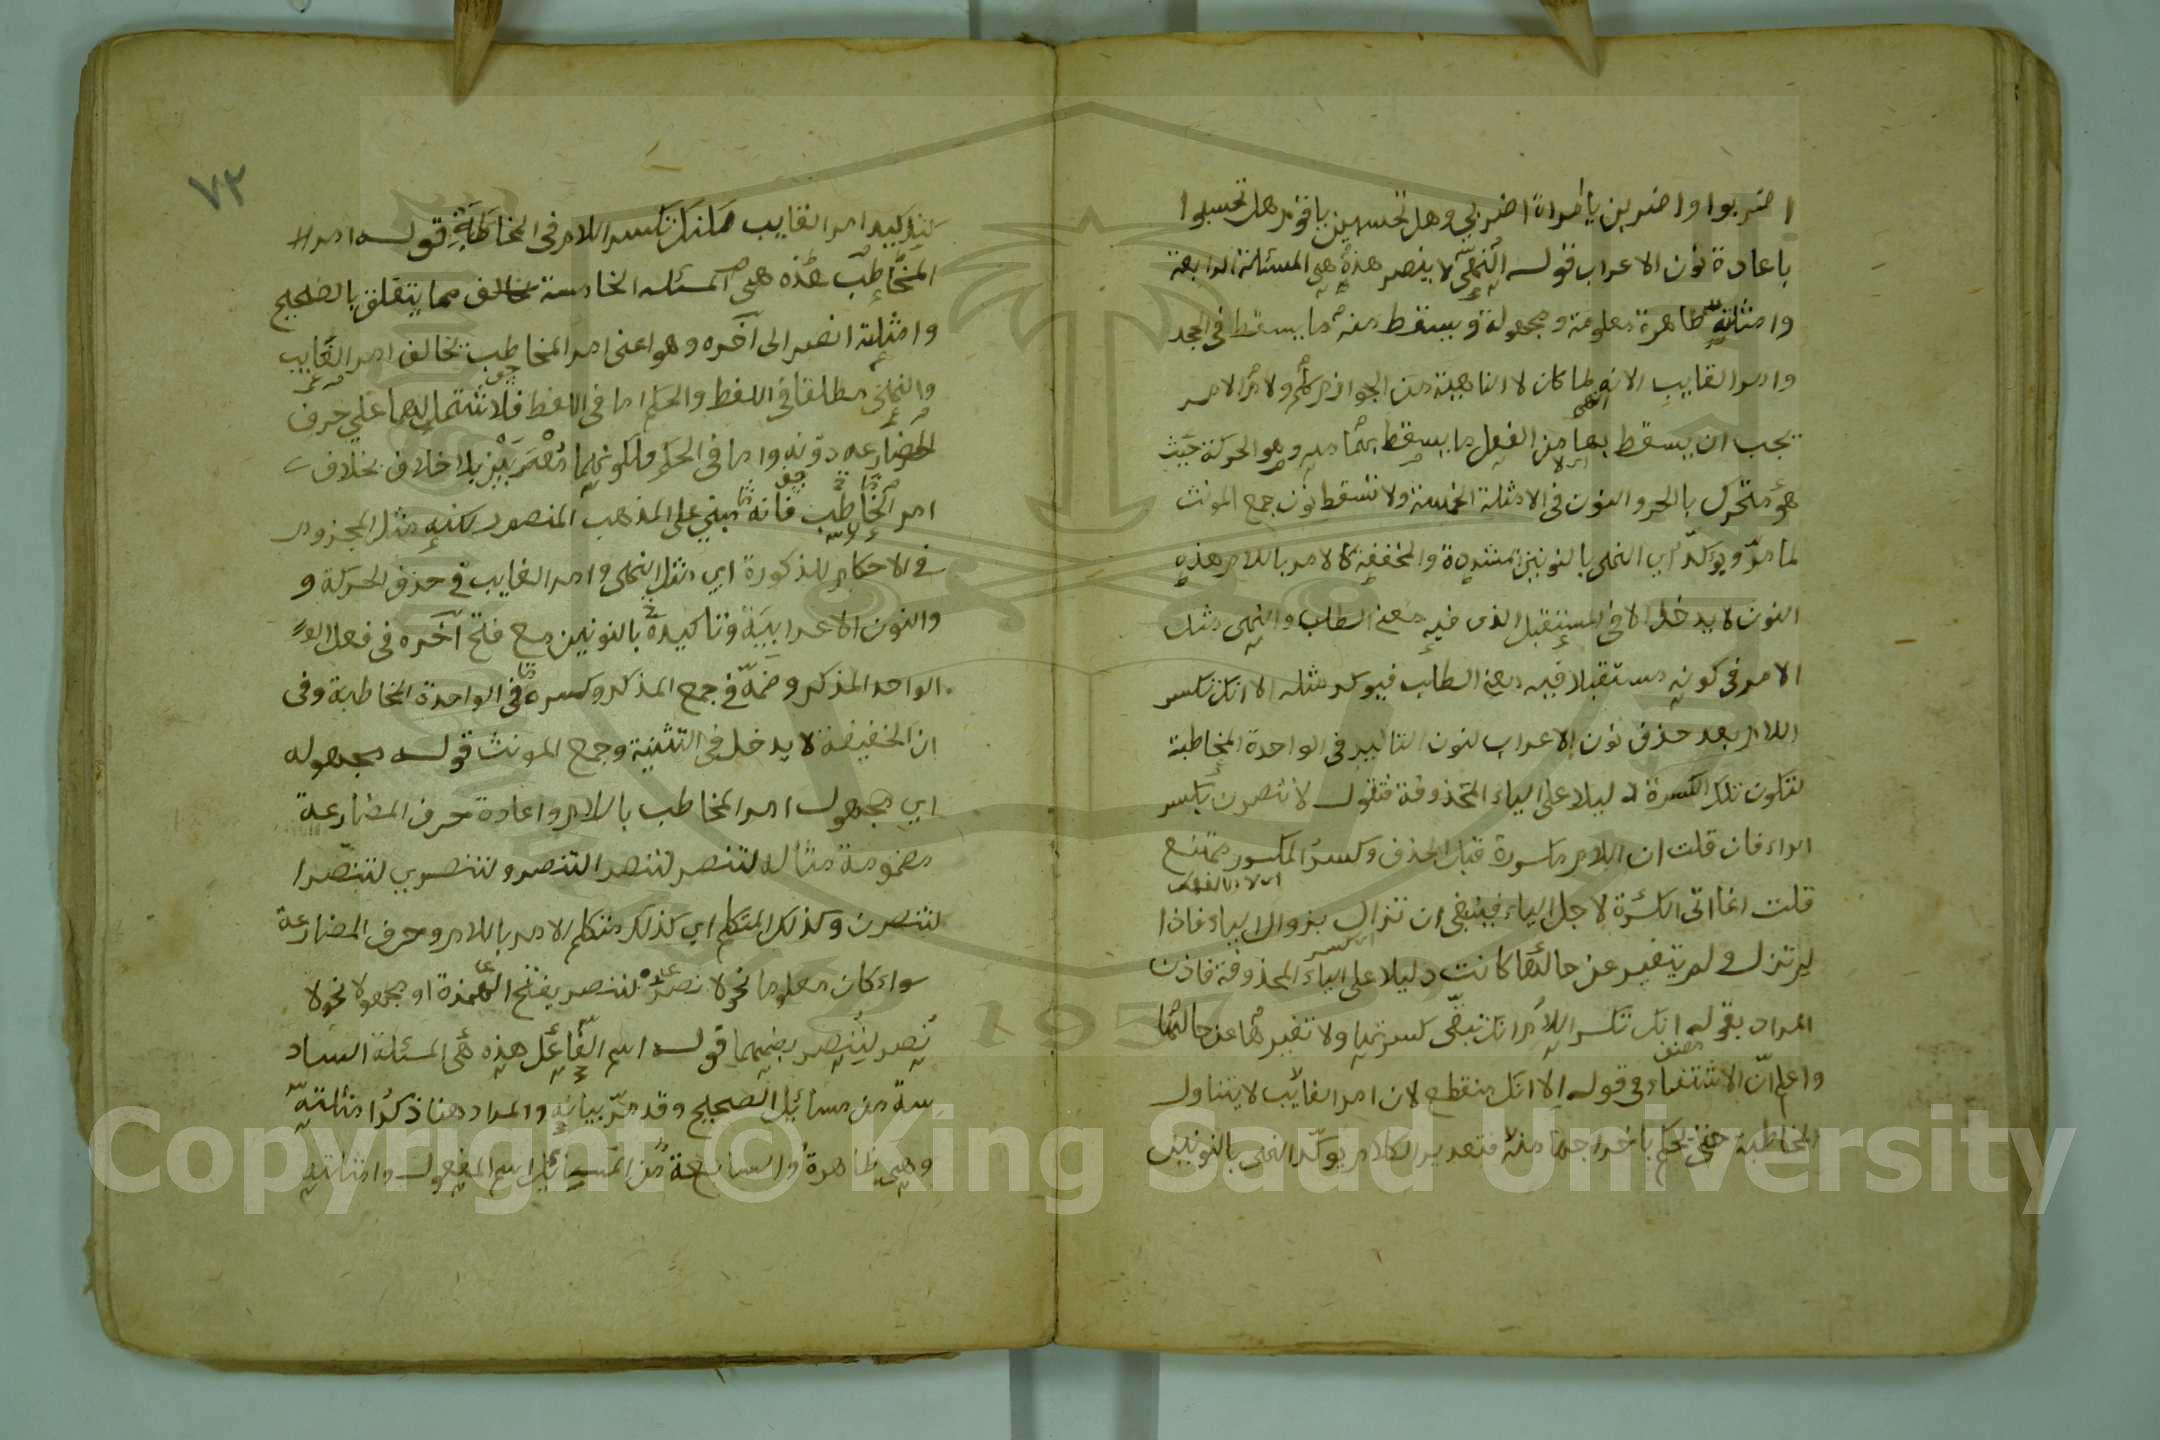 اضربوا واضربن يا امراة اضربي وهل تحسبن يا قوم هل تحسبوا
باعادة نون الاعراب قوله النهي لا ينصر هذه هي المسئلة الرابعة
وامثلته ظاهرة معلومة ومجهولة ويسقط منه ما يسقط في الجحد
وامر الغايب لانه لما كان لا الناهية من الجوازم كلم ولام الامر
يجب ان يسقط بها من الفعل ما يسقط بهما وهو الحركة حيث
هو متحرك بالحر والنون في الامثلة الخمسة ولا تسقط نون جمع المونث
لما مر ويوكد اي النهي بالنونين المشددة والمخففة كالامر باللام هذه
النون لا يدخل الا في المستقبل الذي فيه معني الطلب والنهي مثل
الامر في كونه مستقبلا فيه معني الطلب فيوكد مثله الا انك تكسر
اللام بعد حذف نون الاعراب لنون التاكيد في الواحدة المخاطبة
لتكون تلك الكسرة دليلا على الياء المحذوفة فتقول لا تنصرن بكسر
الراء فان قلت ان اللام مكسورة قبل الحذف وكسر المكسور ممتنع
قلت انما اتى الكسرة لاجل الياء فينبغي ان تزال بزوال الياء فاذا
لم تزل ولم يتغير عن حالتها كانت دليلا على الياء المحذوفة فاذن
المراد بقوله انك تكسر اللام انك تبقى كسرتها ولا تغيرها عن حالتها
واعلم ان الاستثناء في قوله الا انك منقطع لان امر الغايب لا يتناول
المخاطبة حتى يحكم باخراجها منه فتقدير الكلام يوكد النهي بالنونين
٧٣
كتوكيد امر الغايب لكنك تكسر اللام في المخاطبة قوله امر
المخاطب هذه هي المسئلة الخامسة مما يتعلق بالصحيح
وامثلته انصر الى آخره وهو اعني امر المخاطب يخالف امر الغايب
والنهي مطلقا في اللفظ والحكم اما في اللفظ فلاشتمالهما على حرف
المضارعه دونه واما في الحكم فلكونهما معربين بلا خلاف بخلاف
امر المخاطب فانه مبني على المذهب المنصور لكنه مثل المجزوم
في الاحكام المذكورة اي مثل النهي وامر الغايب في حذف الحركة و
والنون الاعرابية وتاكيده بالنونين مع فتح آخره في فعل الو
الواحد المذكر وضمه في جمع المذكر وكسره في الواحدة المخاطبة وفي
ان الخفيفة لا يدخل في التثنية وجمع المونث قوله مجهوله
اي مجهول امر المخاطب باللام واعادة حرف المضارعة
مضمومة مثاله لتنصر لتنصرا لتنصروا لتنصري لتنصرا
لتنصرن وكذلك المتكلم اي كذلك متكلم الامر باللام وحرف المضارعة
سواء كان معلوما نحو لانصر لننصر بفتح الهمزة او مجهولا نحو لا
نصر لننصر بضمهما قوله اسم الفاعل هذه هي المسئلة الساد
سة من مسائل الصحيح وقد مر بيانه والمراد هنا ذكر امثلته
وهي ظاهرة والسابعة من المسائل اسم المفعول وامثلته
Copyright © King Saud University
1957